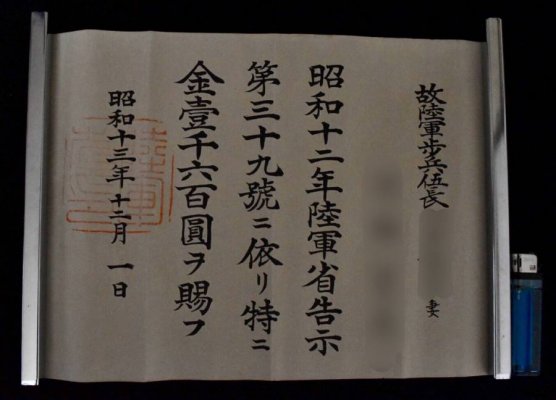 故陸軍歩兵伍長
妻
昭和十二年陸軍省告示
第三十九號ニ依リ特ニ
金壹千六百圓ヲ賜フ
昭和十三年十二月一日